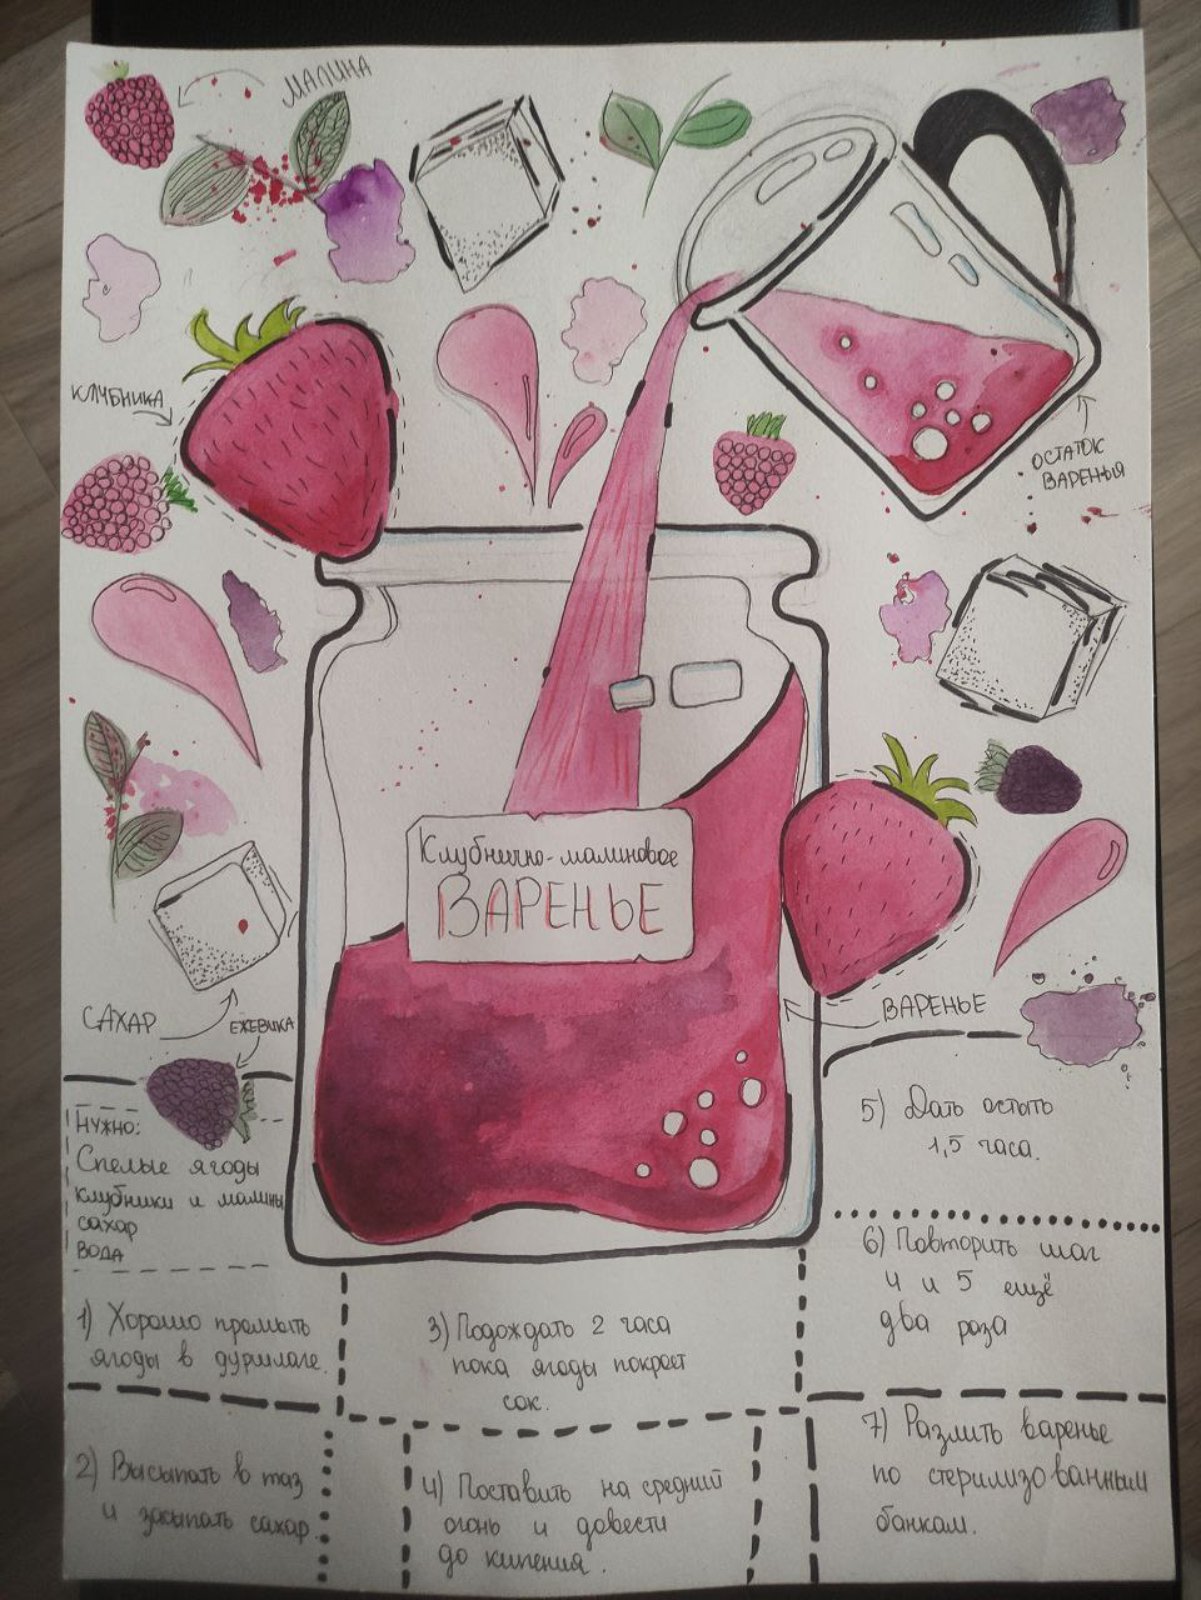 МАЛИНА
КЛУБНИКА
ОСТАТОК
ВАРЕНЬЯ
Клубнично-малиновое
ВАРЕНЬЕ
САХАР
ЕЖЕВИКА
ВАРЕНЬЕ
НУЖНО:
Спелые ягоды
клубники и малины
сахар
ВОДА
1) Хорошо промыть
ягоды в дуршлаге.
2) Высыпать в таз
и засыпать сахар
3) Подождать 2 часа
пока ягоды покроет
сок.
4) Поставить на средний
огонь и довести
до кипения.
5) Дать остыть
1,5 часа.
6) Повторить шаг
4 и 5 ещё
два раза
7) Разлить варенье
по стерилизованным
банкам.